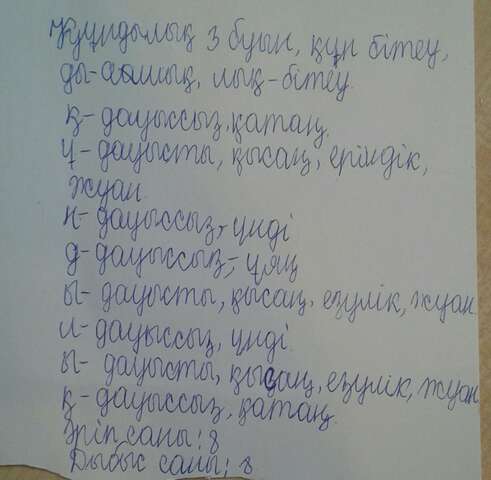 Құндылық 3 буын, құн бітеу,
ды-ашық, лық-бітеу.
қ- дауыссыз, қатаң.
ұ- дауысты, қысаң, еріндік,
жуан.
н- дауыссыз, үнді
д- дауыссыз, ұяң
ы- дауысты, қысаң, езулік, жуан.
л- дауыссыз, үнді.
ы- дауысты, қысаң, езулік, жуан
қ- дауыссыз, қатаң.
Әріп саны: 8
Дыбыс саны: 8